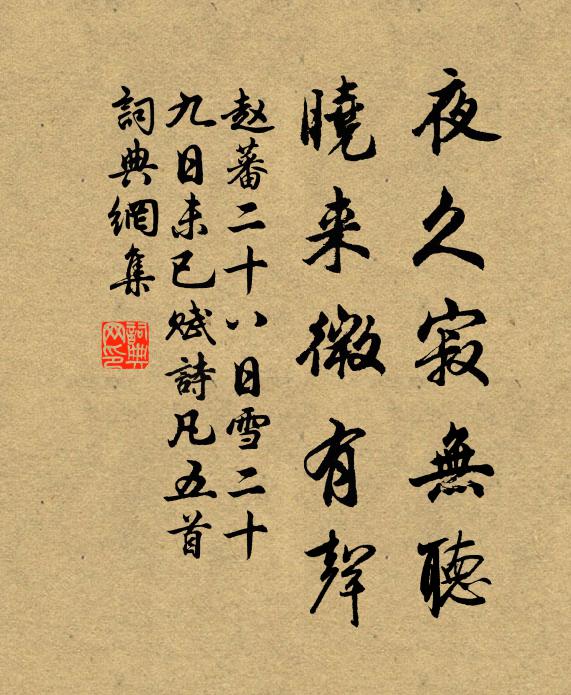 夜久寂無聽
曉来微有聲
赵蕃二十八日雪二十
九日未已赋詩凡五首
詞典網集
詞典网印